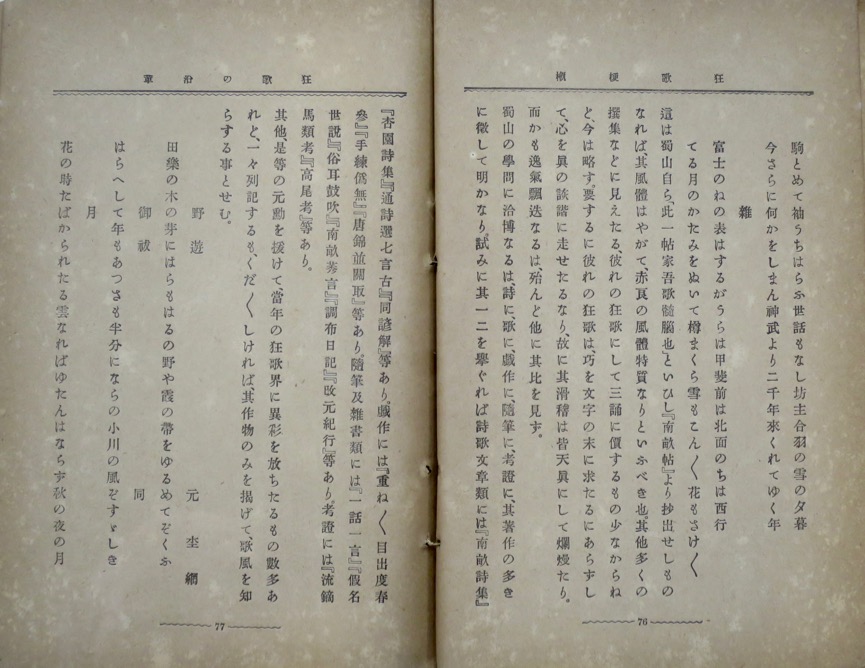 狂歌梗槪
駒とめて袖うちはらふ世話もなし坊主合羽の雪の夕暮
今さらに何かをしまん神武より二千年來くれてゆく年
雜
富士のねの表はするがうらは甲斐前は北面のちは西行
てる月のかたみをぬいて樽まくら雪もこん〳〵花もさけ〳〵
這は蜀山自ら、此一帖家吾歌髓腦也』といひし『南畝帖』より抄出せしもの
なれば、其風體はやがて、赤良の風體特質なりといふべき也。其他多くの
撰集などに見えたる、彼れの狂歌にして三誦に價するもの少なからね
ど、今は略す。要するに彼れの狂歌は、巧を文字の末に求たるにあらずし
て、心を眞の詼諧に走せたるなり、故に其滑稽は皆天眞にして爛熳たり。
而かも逸氣飄迭なるは、殆んど他に其比を見す。
蜀山の學問に洽博なるは、詩に、歌に、戲作に、隨筆に、考證に、其著作の多き
に徵して明かなり。試みに其一二を擧ぐれば詩歌文章類には『南畝詩集』
76
狂歌の沿革
『杏園詩集』『通詩選七言古』『同諺解』等あり。戲作には『重ね〳〵目出度春
參』『手練僞無』『唐錦並關取』等あり。隨筆及雜書類には『一話一言』『假名
世說』『俗耳鼓吹』『南畝莠言』『調布日記』『改元紀行』等あり。考證には『流鏑
馬類考』『高尾考』等あり。
其他、是等の元勳を援けて、當年の狂歌界に異彩を放ちたるもの數多あ
れど、一々列記するも、くだ〳〵しければ、其作物のみを揭げて、歌風を知
らする事とせむ。
野遊 元杢網
田樂の木の芽にはらもはるの野や霞の帶をゆるめてぞくふ
御祓 同
はらへして年もあつさも半分にならの小川の風ぞすゞしき
月
花の時たばかられたる雲なればゆたんはならず秋の夜の月
77